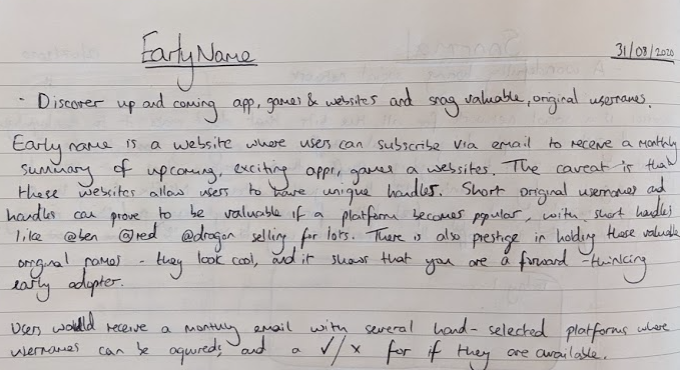 EarlyName
31/08/2020
· Discover up and coming app, games & websites and snag valuable, original usernames.
Early name is a website where users can subscribe via email to receive a monthly
summary of upcoming, exciting apps, games & websites. The caveat is that
these websites allow users to have unique handles. Short original usernames and
handles can prove to be valuable if a platform becomes popular, with short handles
like @ben @red @dragon selling for lots. There is also prestige in holding these valuable
original names - they look cool, and it shows that you are a forward-thinking
early adopter.
Users would receive a monthly email with several hand-selected platforms where
usernames can be aquired, and a ✓/x for if they are available.